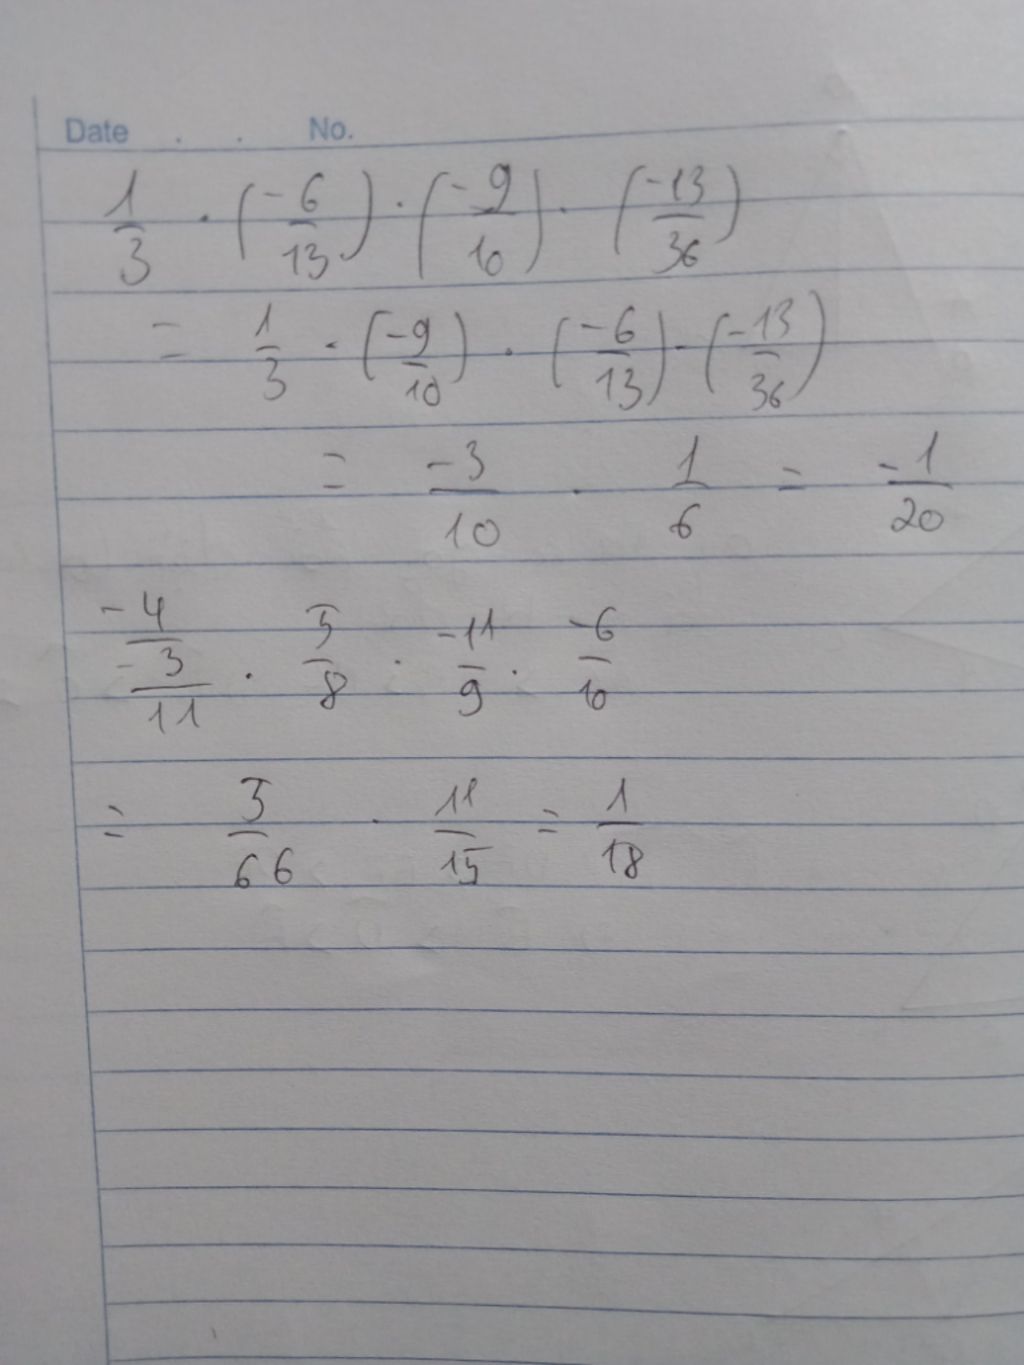 Date . . No.
1/3 · (-6/13) · (-9/10) · (-13/36)
= 1/3 · (-9/10) · (-6/13) · (-13/36)
= -3/10 · 1/6 = -1/20
-4/-3/11 · 5/8 · -11/9 · -6/10
= 5/66 · 11/15 = 1/18